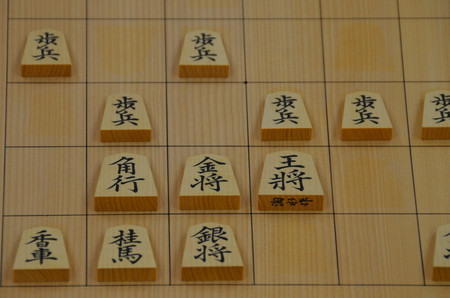 歩兵
歩兵
歩兵
歩兵
歩兵
歩兵
角行
金将
王将
香車
桂馬
銀将